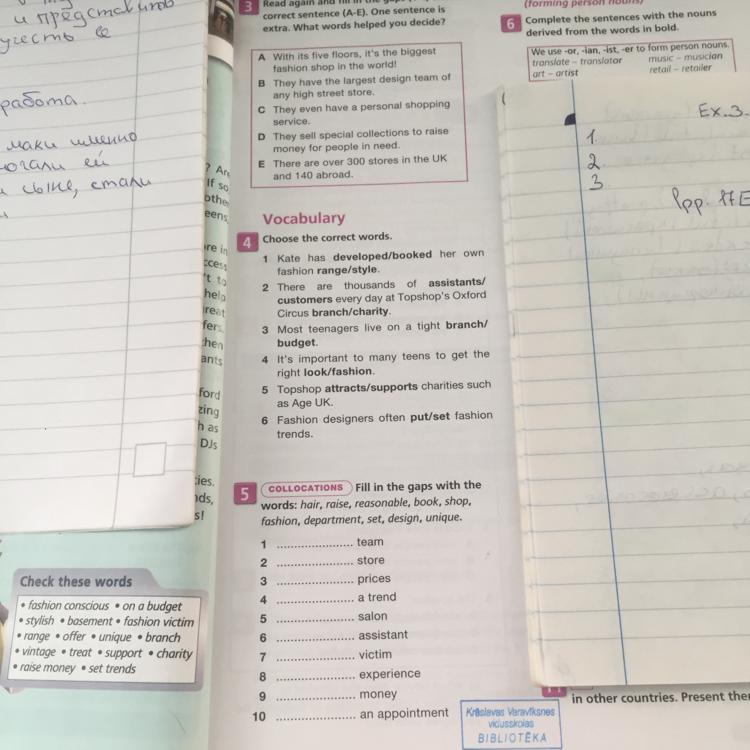 и представитв
учесть её
работа.
маки именно
могали ей
сыне, стали
? Are
If so
othe
eens
are in
't to
help
fers
then
ants
ford
h as
DJs
s!
Check these words
• fashion conscious • on a budget
• stylish • basement • fashion victim
• range • offer • unique • branch
• vintage • treat • support • charity
• raise money • set trends
3 Read again and fill in the gaps
correct sentence (A-E). One sentence is
extra. What words helped you decide?
A With its five floors, it's the biggest
fashion shop in the world!
B They have the largest design team of
any high street store.
C They even have a personal shopping
service.
D They sell special collections to raise
money for people in need.
E There are over 300 stores in the UK
and 140 abroad.
Vocabulary
4 Choose the correct words.
1 Kate has developed/booked her own
fashion range/style.
2 There are thousands of assistants/
customers every day at Topshop's Oxford
Circus branch/charity.
3 Most teenagers live on a tight branch/
budget.
4 It's important to many teens to get the
right look/fashion.
5 Topshop attracts/supports charities such
as Age UK.
6 Fashion designers often put/set fashion
trends.
5 COLLOCATIONS Fill in the gaps with the
words: hair, raise, reasonable, book, shop,
fashion, department, set, design, unique.
1 ...................... team
2 ...................... store
3 ...................... prices
4 ...................... a trend
5 ...................... salon
6 ...................... assistant
7 ...................... victim
8 ...................... experience
9 ...................... money
10 ...................... an appointment
(forming person nouns)
6 Complete the sentences with the nouns
derived from the words in bold.
We use -or, -ian, -ist, -er to form person nouns.
translate – translator music – musician
art – artist retail – retailer
Ex.3.
1.
2
3
in other countries. Present
Krāslavas Varavīksnes
vidusskolas
BIBLIOTĒKA